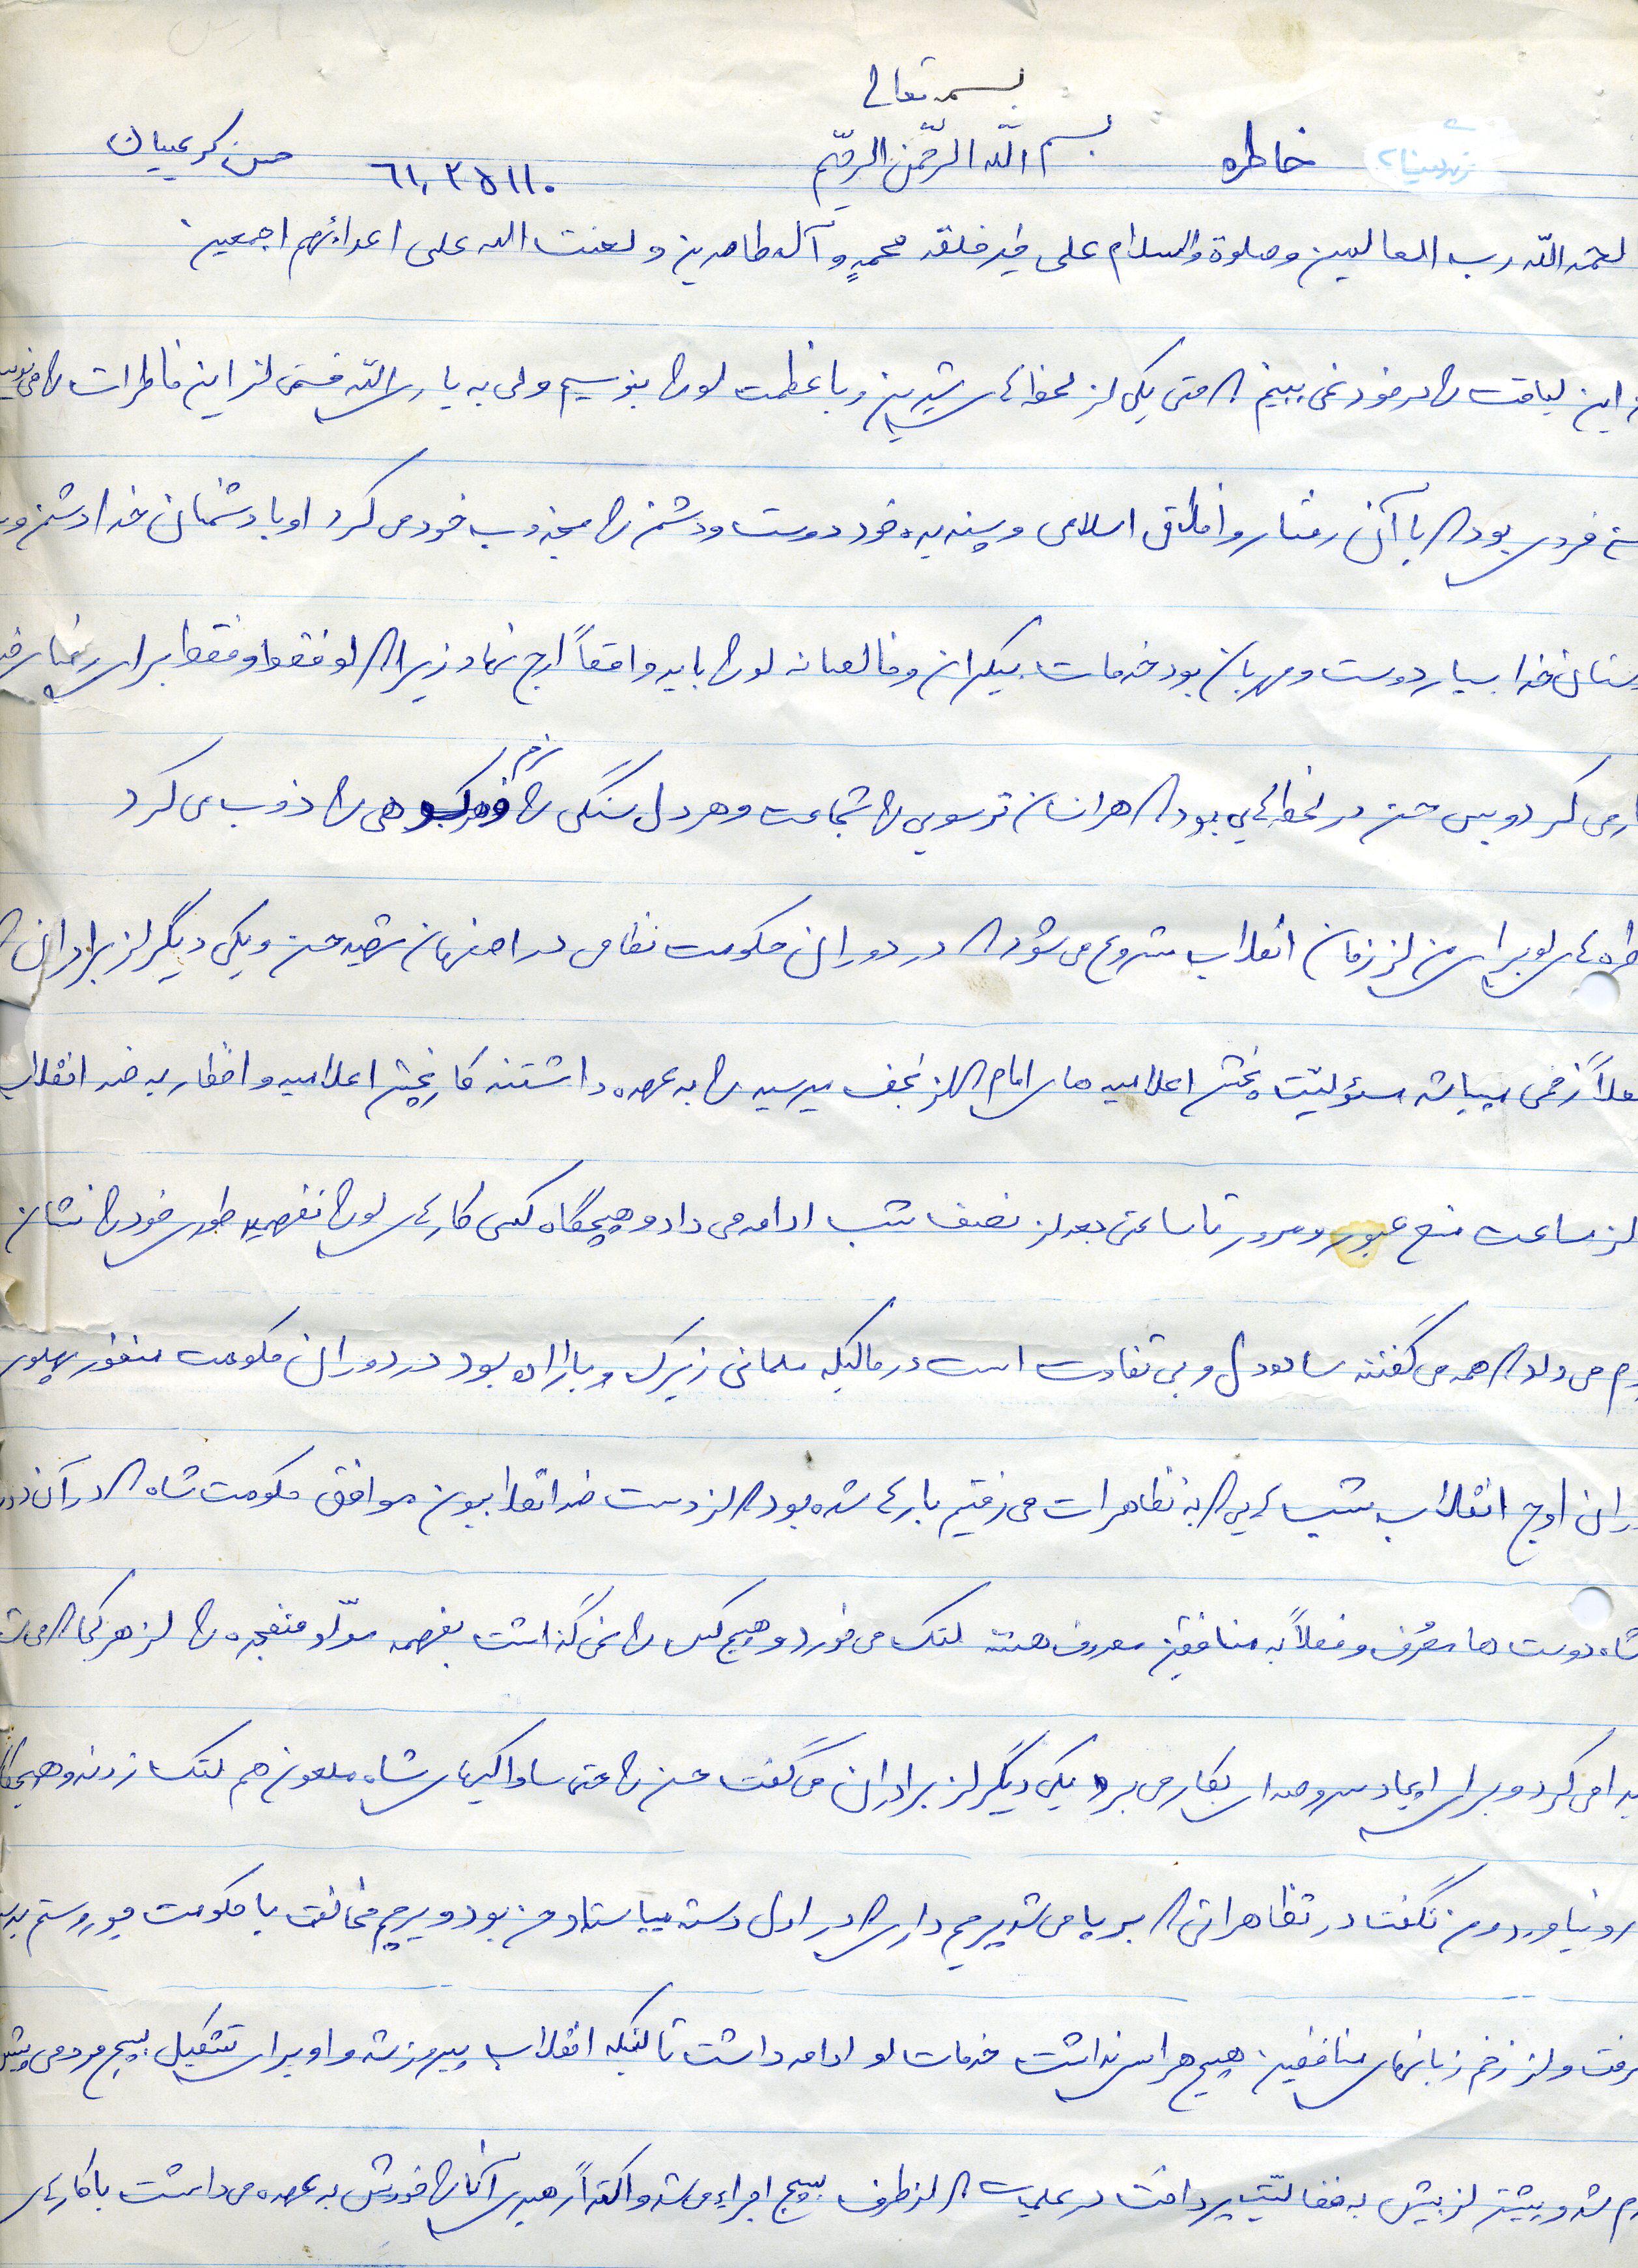 بسمه تعالی
خاطره بسم اللّه الرّحمن الرحیّم ٦١،٢٥١١٠ حسن کریمیان
لحمد اللّه رب العالمین و صلوة والسلام علی خیر خلقه محمدٍ و آله طاهرین و لعنت الله علی اعدائهم اجمعین
این لیاقت را در خود نمی بینم که حتی یکی از لحظه های شیرین و با عظمت او را بنویسم ولی به یاری اللّه قسمتی از این خاطرات را
فردی بود که با آن رفتار و اخلاق اسلامی و پسندیده خود دوست و دشمن را مجذوب خود می کرد او با دشمنان خدا دشمن و
خدا بسیار دوست و مهربان بود خدمات بیکران و خالصانه او را باید واقعاً ارج نهاد زیرا که او فقط و فقط برای رضای
می کرد و پس حسن در لحظه هایی بود که هر انسان ترسویی را شجاعت و هر دل سنگی را نرم هی را ذوب می کرد
های او برای من از زمان انقلاب شروع می شود که در دوران حکومت نظامی در اصفهان شهید حسن و یکی دیگر از برادران که
زخمی میباشد مسؤلیّت پخش اعلامیه های امام که از نجف میرسید را به عهده داشتند کار پخش اعلامیه و اخطار به ضد انقلاب
از ساعت منع عبور و مرور تا ساعتی بعد از نصف شب ادامه می داد و هیچگاه کسی کارهای او را نفهمید طوری خود را نشان
می داد که همه می گفتند ساده دل و بی تفاوت است در حالیکه مسلمانی زیرک و با اراده بود در دوران حکومت منفور پهلوی
اوج انقلاب شب هایی که به تظاهرات می رفتیم بارها شده بود که از دست ضد انقلابیون موافق حکومت شاه که در آن
شاه دوست ها معرُف و فعلاً به منافقین معروف هستند کتک می خورد و هیچ کس را نمی گذاشت بفهمد موّاد منفجره را از هر کجا که
می کرد و برای ایجاد سر و صدا بکار می برد یکی دیگر از برادران می گفت حسن را حتی ساواکیهای شاه ملعون هم کتک زدند و
نیاورد و نگفت در تظاهراتی که بر پا می شد پرچم داری که در اول دسته میایستاد حسن بود و پرچم مخالفت با حکومت جور و ستم
و از زخم زبانهای منافقین هیچ هراسی نداشت خدمات او ادامه داشت تا اینکه انقلاب پیروز شد و او برای تشکیل بسیج مردمی
شد و بیشتر از پیش به فعالیّت پرداخت در عملیات که از طرف بسیج اجراء می شد و اکثراً رهبری آنان را خودش به عهده می داشت با کارهای